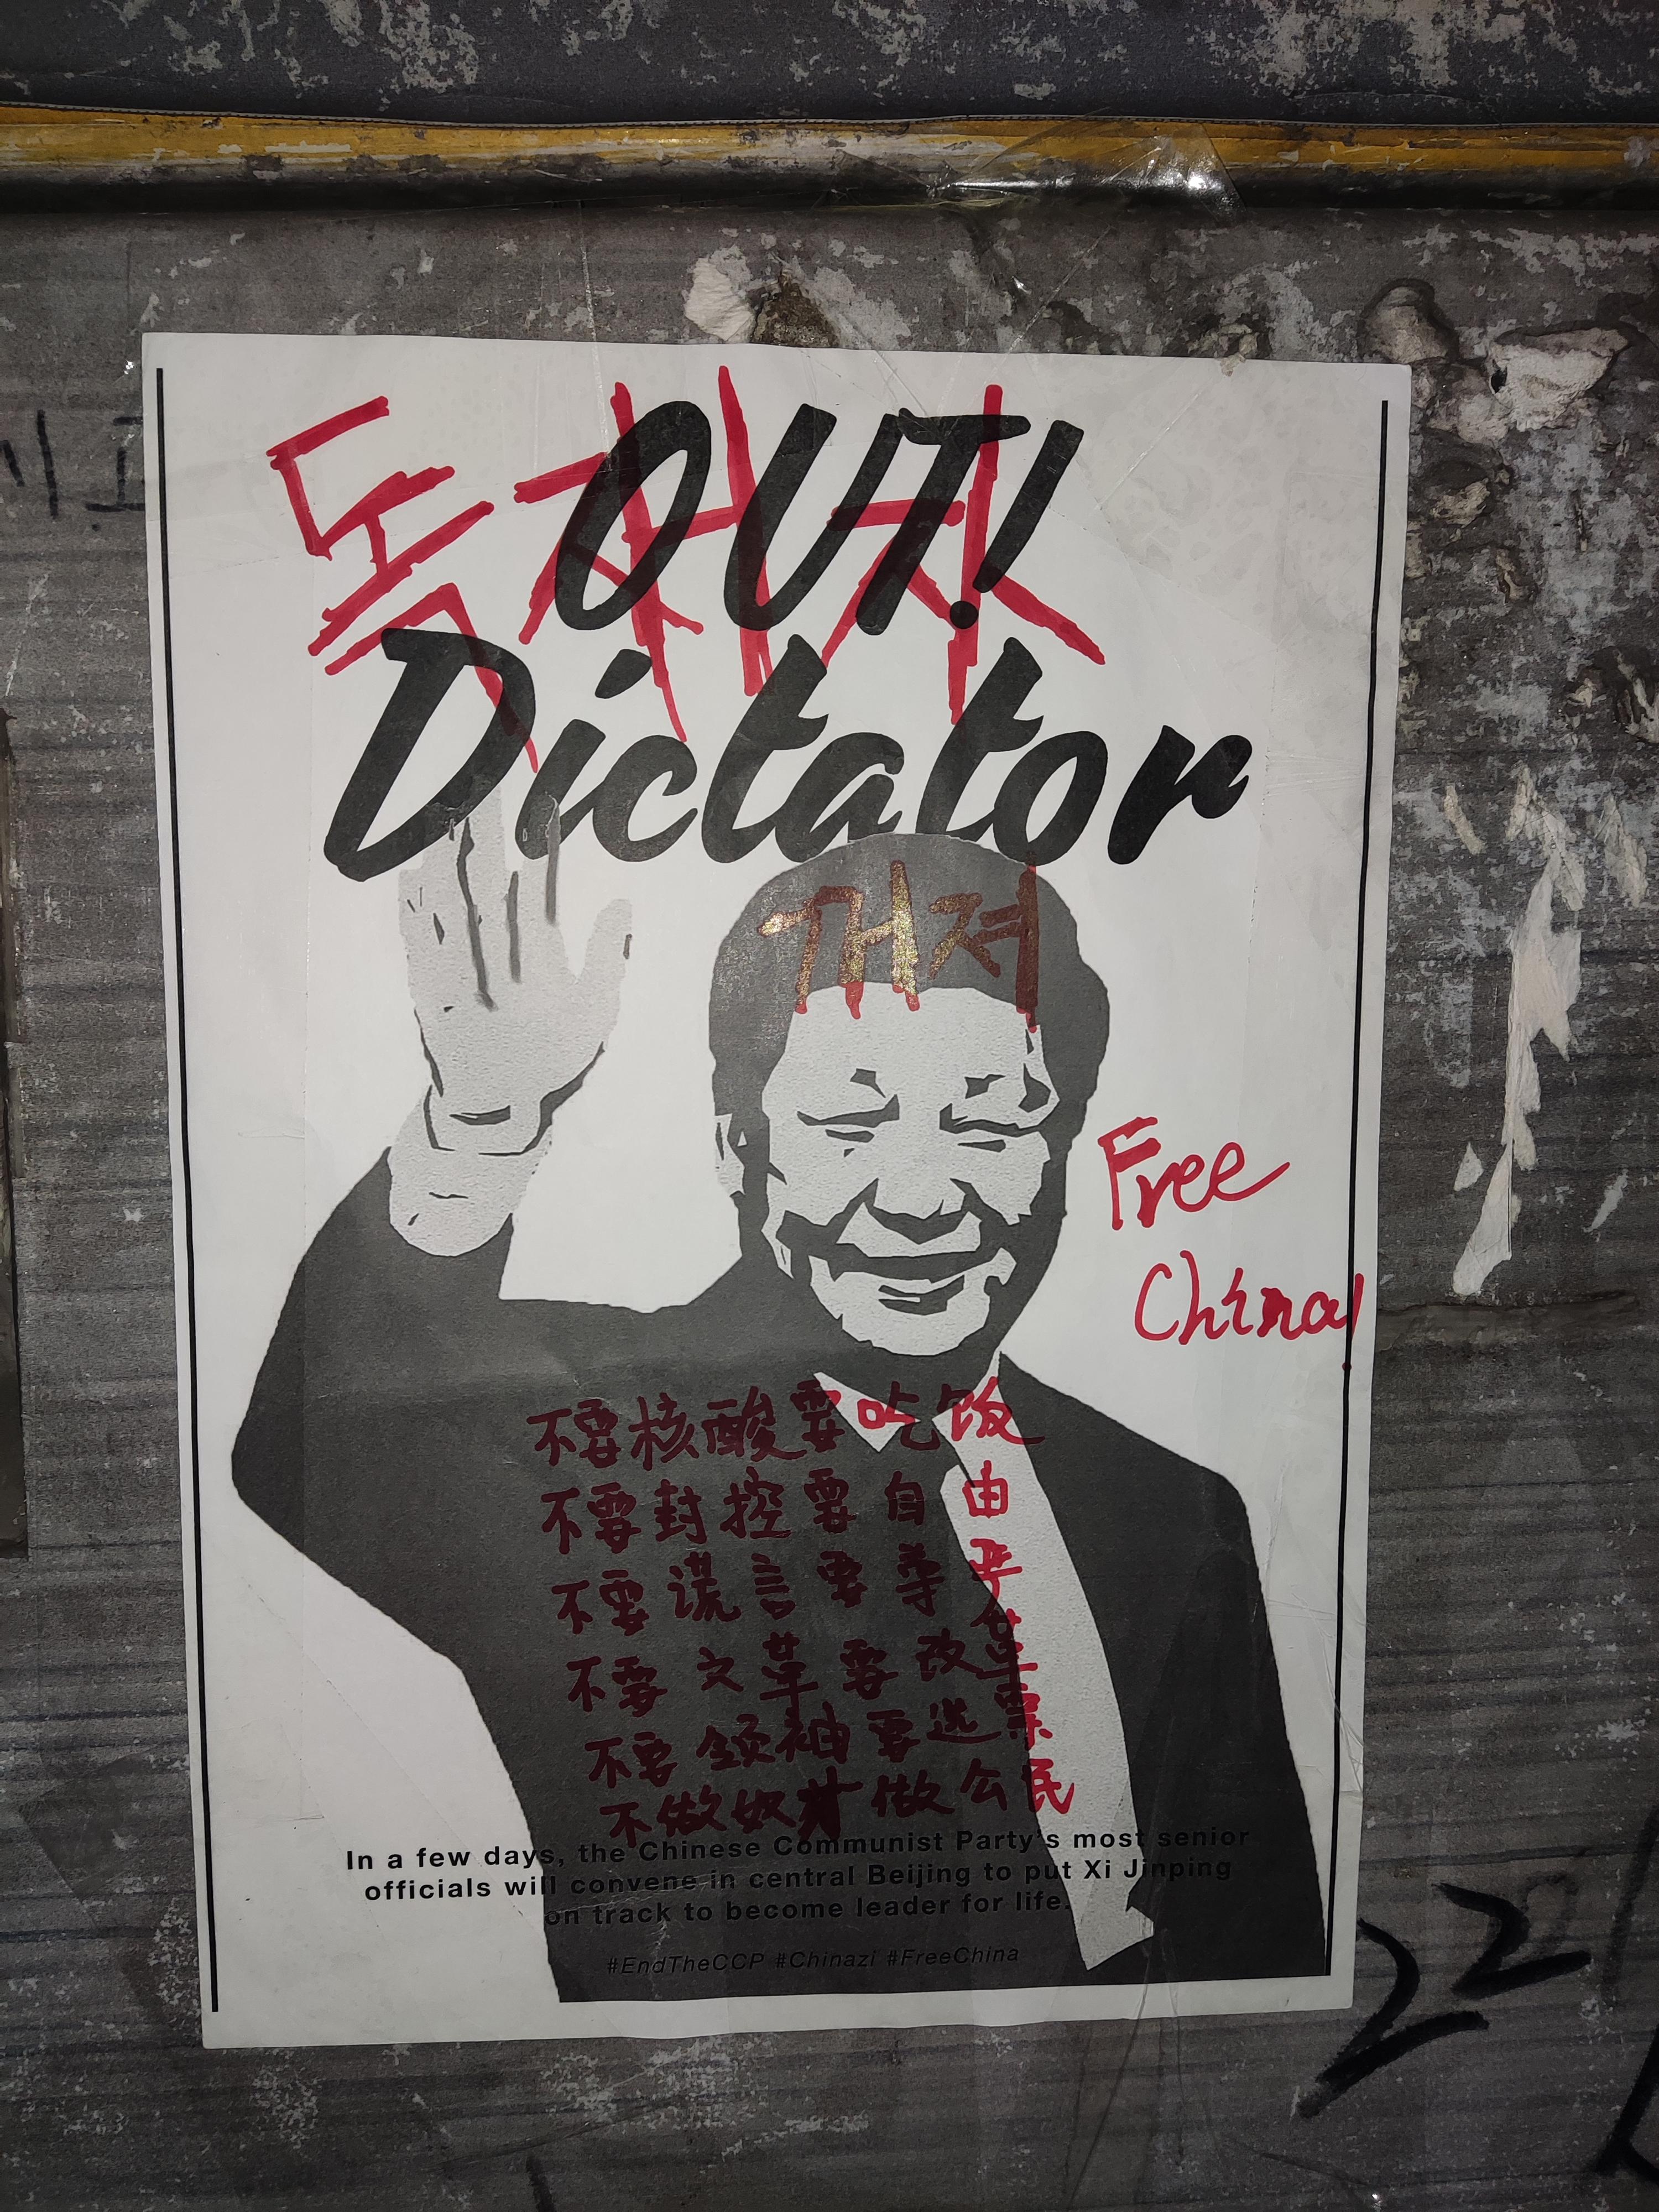 독재자
OUT!
Dictator
꺼져
Free
China!
不要核酸要吃饭
不要封控要自由
不要谎言要尊严
不要文革要改革
不要领袖要选票
不做奴才做公民
In a few days, the Chinese Communist Party's most senior
officials will convene in central Beijing to put Xi Jinping
on track to become leader for life.
#EndTheCCP #Chinazi #FreeChina